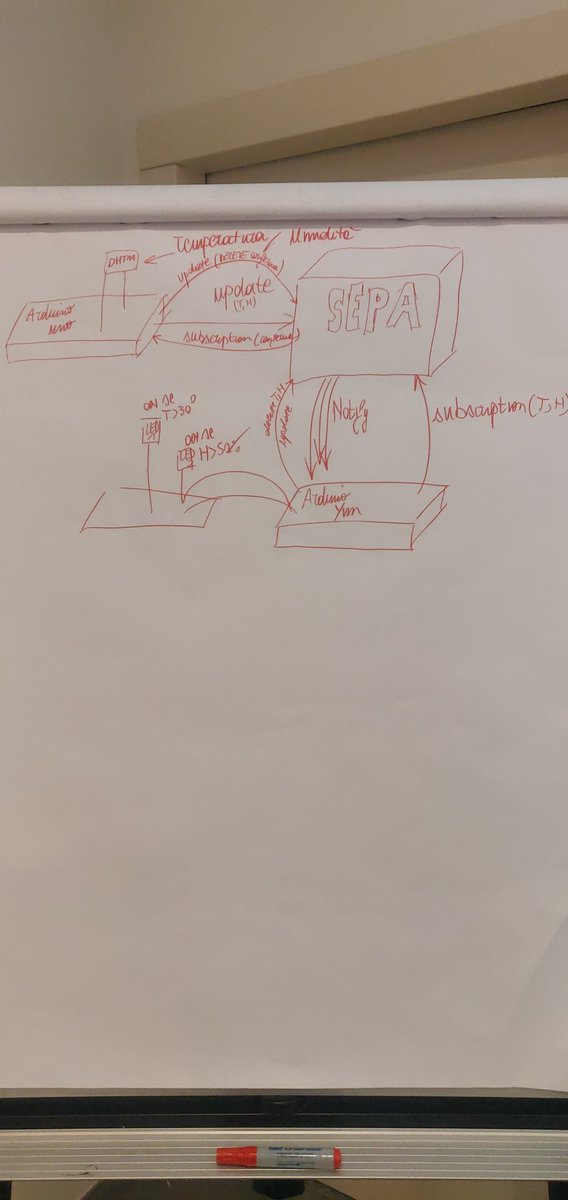 Temperatura Umidità
DHT11
update (DELETE conferma)
Arduino
uno
update
(T, H)
SEPA
subscription (conferma)
ON se
T>30°
LED
ON se
H>50%
LED
delete T,H
update
Notify
subscription (T, H)
Arduino
Yun